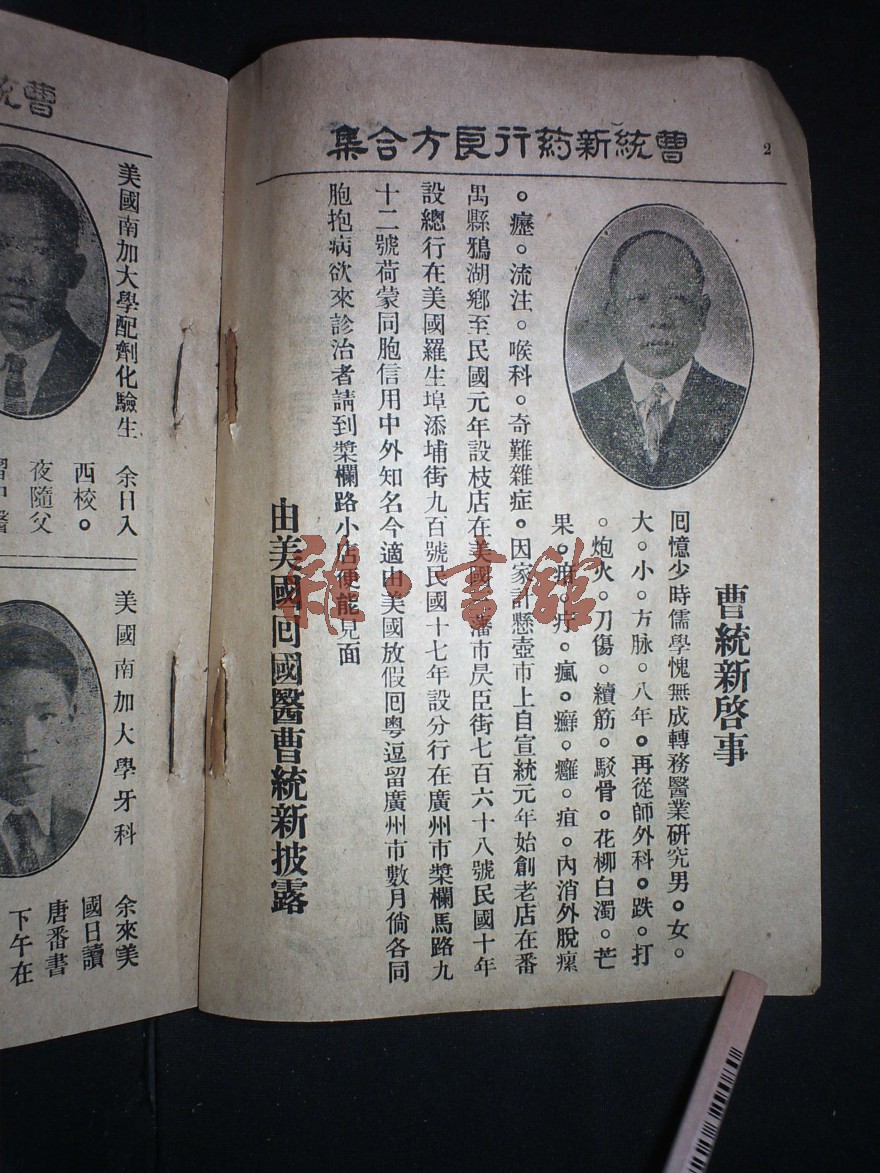 2
曹統新葯行良方合集
曹統新啓事
囘憶少時儒學愧無成轉務醫業硏究男。女。
大。小。方脉。八年。再從師外科。跌。打
。炮火。刀傷。續筋。駁骨。花柳白濁。芒
果。疳。疔。瘋。癬。癰。疽。內消外脫瘰
。癧。流注。喉科。奇難雜症。因家計懸壺市上自宣統元年始創老店在番
禺縣鴉湖鄉至民國元年設枝店在美國藩市昃臣街七百六十八號民國十年
設總行在美國羅生埠添埔街九百號民國十七年設分行在廣州市槳欄馬路九
十二號荷蒙同胞信用中外知名今適由美國放假囘粵逗留廣州市數月倘各同
胞抱病欲來診治者請到槳欄路小店便能見面
由美國囘國醫曹統新披露
雜·書館
曹統
美國南加大學配劑化驗生
余日入
西校。
夜隨父
習中醫
美國南加大學牙科
余來美
國日讀
唐番書
下午在